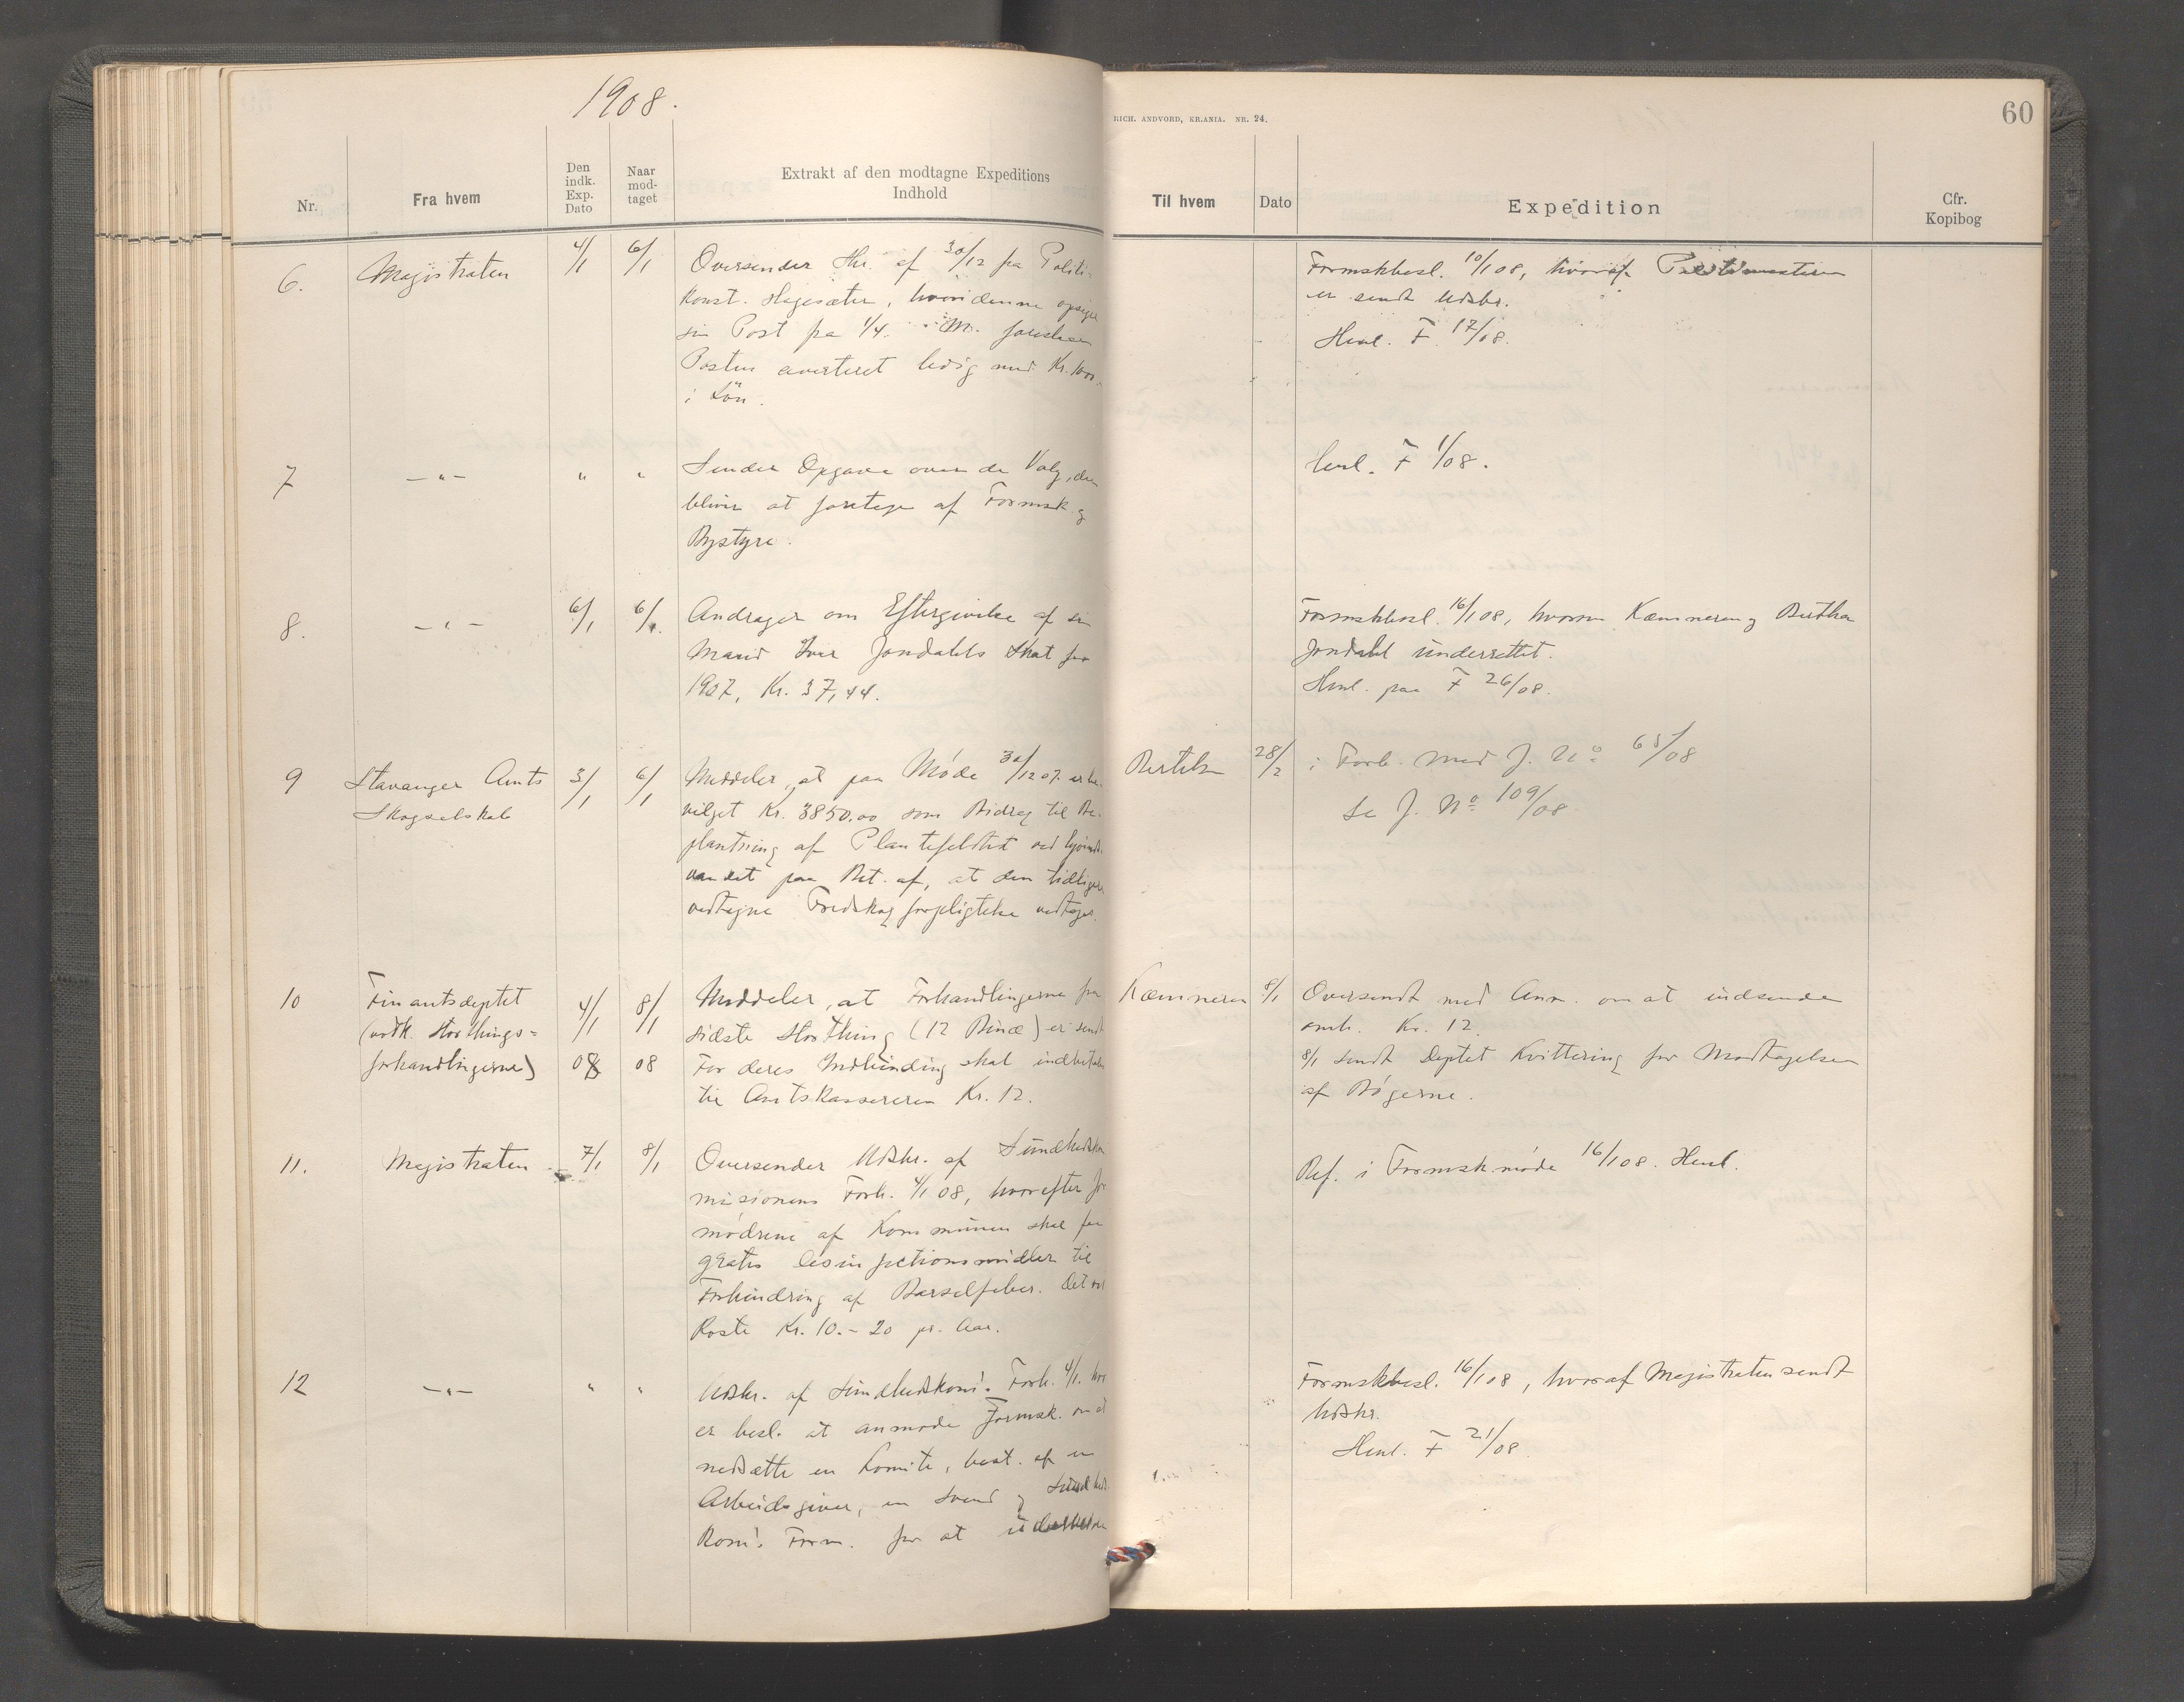 1908.
Nr.
Fra hvem
Den indk. Exp. Dato
Naar mod-taget
Extrakt af den modtagne Expeditions Indhold
RICH. ANDVORD, KR.ANIA. NR. 24.
60
Til hvem
Dato
Expedition
Cfr. Kopibog
6. Magistraten 4/1 6/1
Oversender Skr. af 30/12 fra Politi-
konst. , hvori denne opsiger
sin Post fra 1/4. M. foreslaar
Posten averteret ledig med Kr.
i Løn.
Formskbesl. 10/1 08, hvoraf Politimesteren
er sendt Udskr.
Henl. F 17/08.
7 — " — " "
Sender Opgave over de Valg, der
bliver at foretage af Formsk. og
Bystyre.
Henl. F 1/08.
8. — " — 6/1 6/1.
Andrager om Eftergivelse af sin
Mand Iver Jondahls Skat for
1907, Kr. 37,44.
Formskbesl. 16/1 08, hvorom Kæmneren og Bertha
Jondahl underrettet.
Henl. paa F 26/08.
9 Stavanger Amts 3/1 6/1
Skogselskab
Meddeler, at paa Møde 30/12 07 er be-
vilget Kr. 3850.00 som Bidrag til Be-
plantning af Plantefeldtet ved
vandet paa Bet. af, at den tidligere
vedtagne Fredskogforpligtelse vedtages.
28/2 i Forb. med J. No 65/08
Se J. No 109/08
10 Finantsdeptet 4/1 08 8/1 08
(vedk. Storthings-
forhandlingerne)
Meddeler, at Forhandlingerne fra
sidste Storthing (12 Bind) er sendt
For deres Indbinding skal indbetales
til Amtskassereren Kr. 12.
Kæmneren 8/1 Oversendt med Anm. om at indsende
omh. Kr. 12.
8/1 sendt Deptet Kvittering for Modtagelsen
af Bøgerne.
11. Magistraten 7/1 8/1
Oversender Udskr. af Sundhedskom
misionens Forh. 4/1 08, hvorefter Jor
mødrene af Kommunen skal faa
gratis desinfectionsmidler til
Forhindring af Barselfeber. Det vil
koste Kr. 10.- 20 pr. Aar.
Ref. i Formsk.møde 16/1 08. Henl.
12 — " — " "
Udskr. af Sundhedskom's Forh. 4/1. hvor
er besl. at anmode Formsk. om at
nedsætte en Komite, best. af en
Arbeidsgiver, en Svend og Sundheds
kom's Form. for at
Formskbesl. 16/1 08, hvoraf Magistraten sendt
Udskr.
Henl. F 21/08.